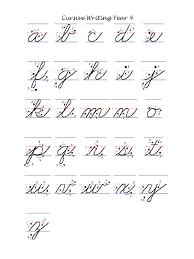 Cursive Writing Year 4
a b c d e
f g h i j
k l m n o
p q r s t
u v w x y
z